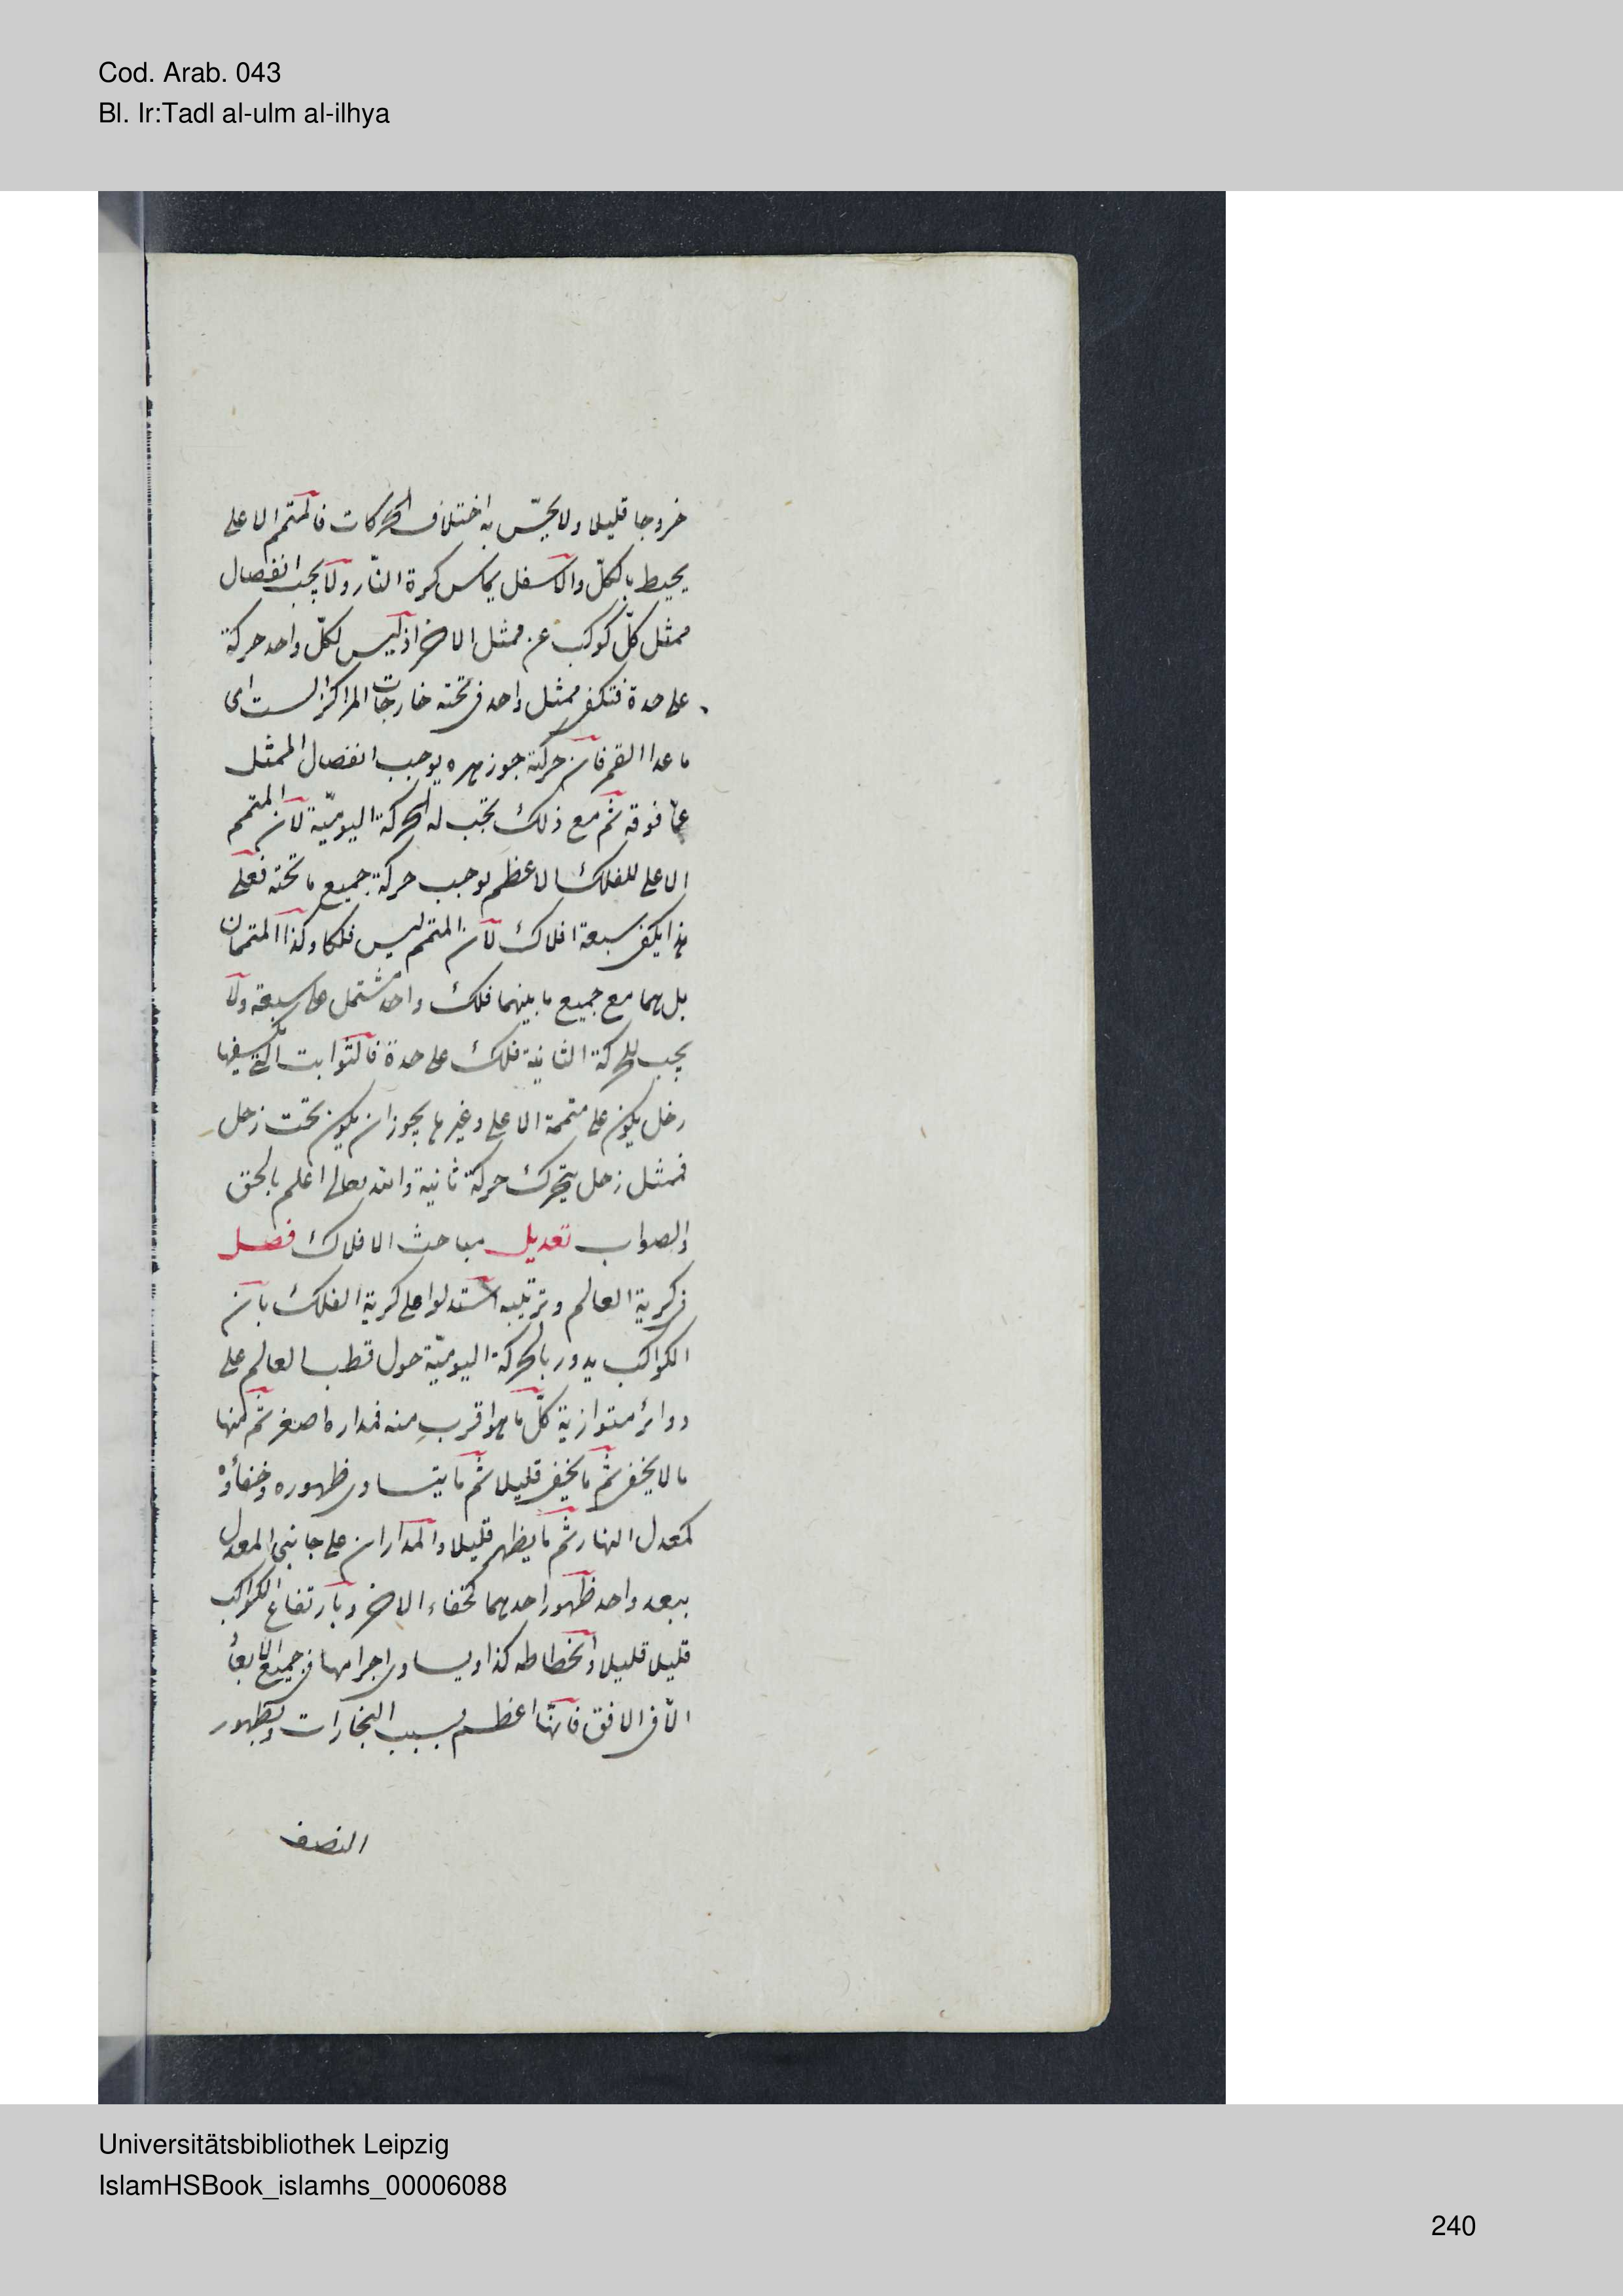 Cod. Arab. 043
Bl. Ir:Tadl al-ulm al-ilhya
خروجا قليلا ولا يحسّ به اختلاف الحركات فالمتمم الاعلى
يحيط بالكلّ والاسفل يماس كرة النّار ولا يجب انفصال
ممثل كلّ كوكب عن ممثل الاخر اذ ليس لكلّ واحد حركة
على حدة فتكفى ممثل واحد فى تحته خارجات المراكز الست اى
ما عدا القمر فان حركة جوزهره يوجب انفصال الممثل
عمّا فوقه ثم مع ذلك تجب له الحركة اليوميّة لان المتمم
الاعلى للفلك الاعظم توجب حركة جميع ما تحته فعلى
هذا يكفى سبعة افلاك لان المتمم ليس فلكا وكذا المتممان
بل هما مع جميع ما بينهما فلك واحد مشتمل على سبعة ولا
يجب للحركة الثانية فلك على حدة فالثوابت التى يكسفها
زحل يكون على متممه الاعلى وغيرها يجوز ان يكون تحت زحل
فممثل زحل يتحرك حركة ثانية والله تعالى اعلم بالحق
والصواب تعديل مباحث الافلاك فصل
فى كرية العالم وترتيبه استدلوا على كرية الفلك بان
الكواكب يدور بالحركة اليوميّة حول قطب العالم على
دوائر متوازية كلّ ما هو اقرب منه فمداره اصغر ثم منها
ما لا يخفى ثم ما يخفى قليلا ثم ما يتساوى ظهوره وخفاؤه
كمعدل النهار ثم ما يظهر قليلا والمداران على جانبى المعدل
ببعد واحد ظهور احدهما كخفاء الاخر وبارتفاع الكواكب
قليلا قليلا وانحطاطه كذا وبساوى اجرامها فى جميع الابعا
الّا فى الافق فانها اعظم بسبب البخارات وبظهور
النصف
Universitätsbibliothek Leipzig
IslamHSBook_islamhs_00006088
240